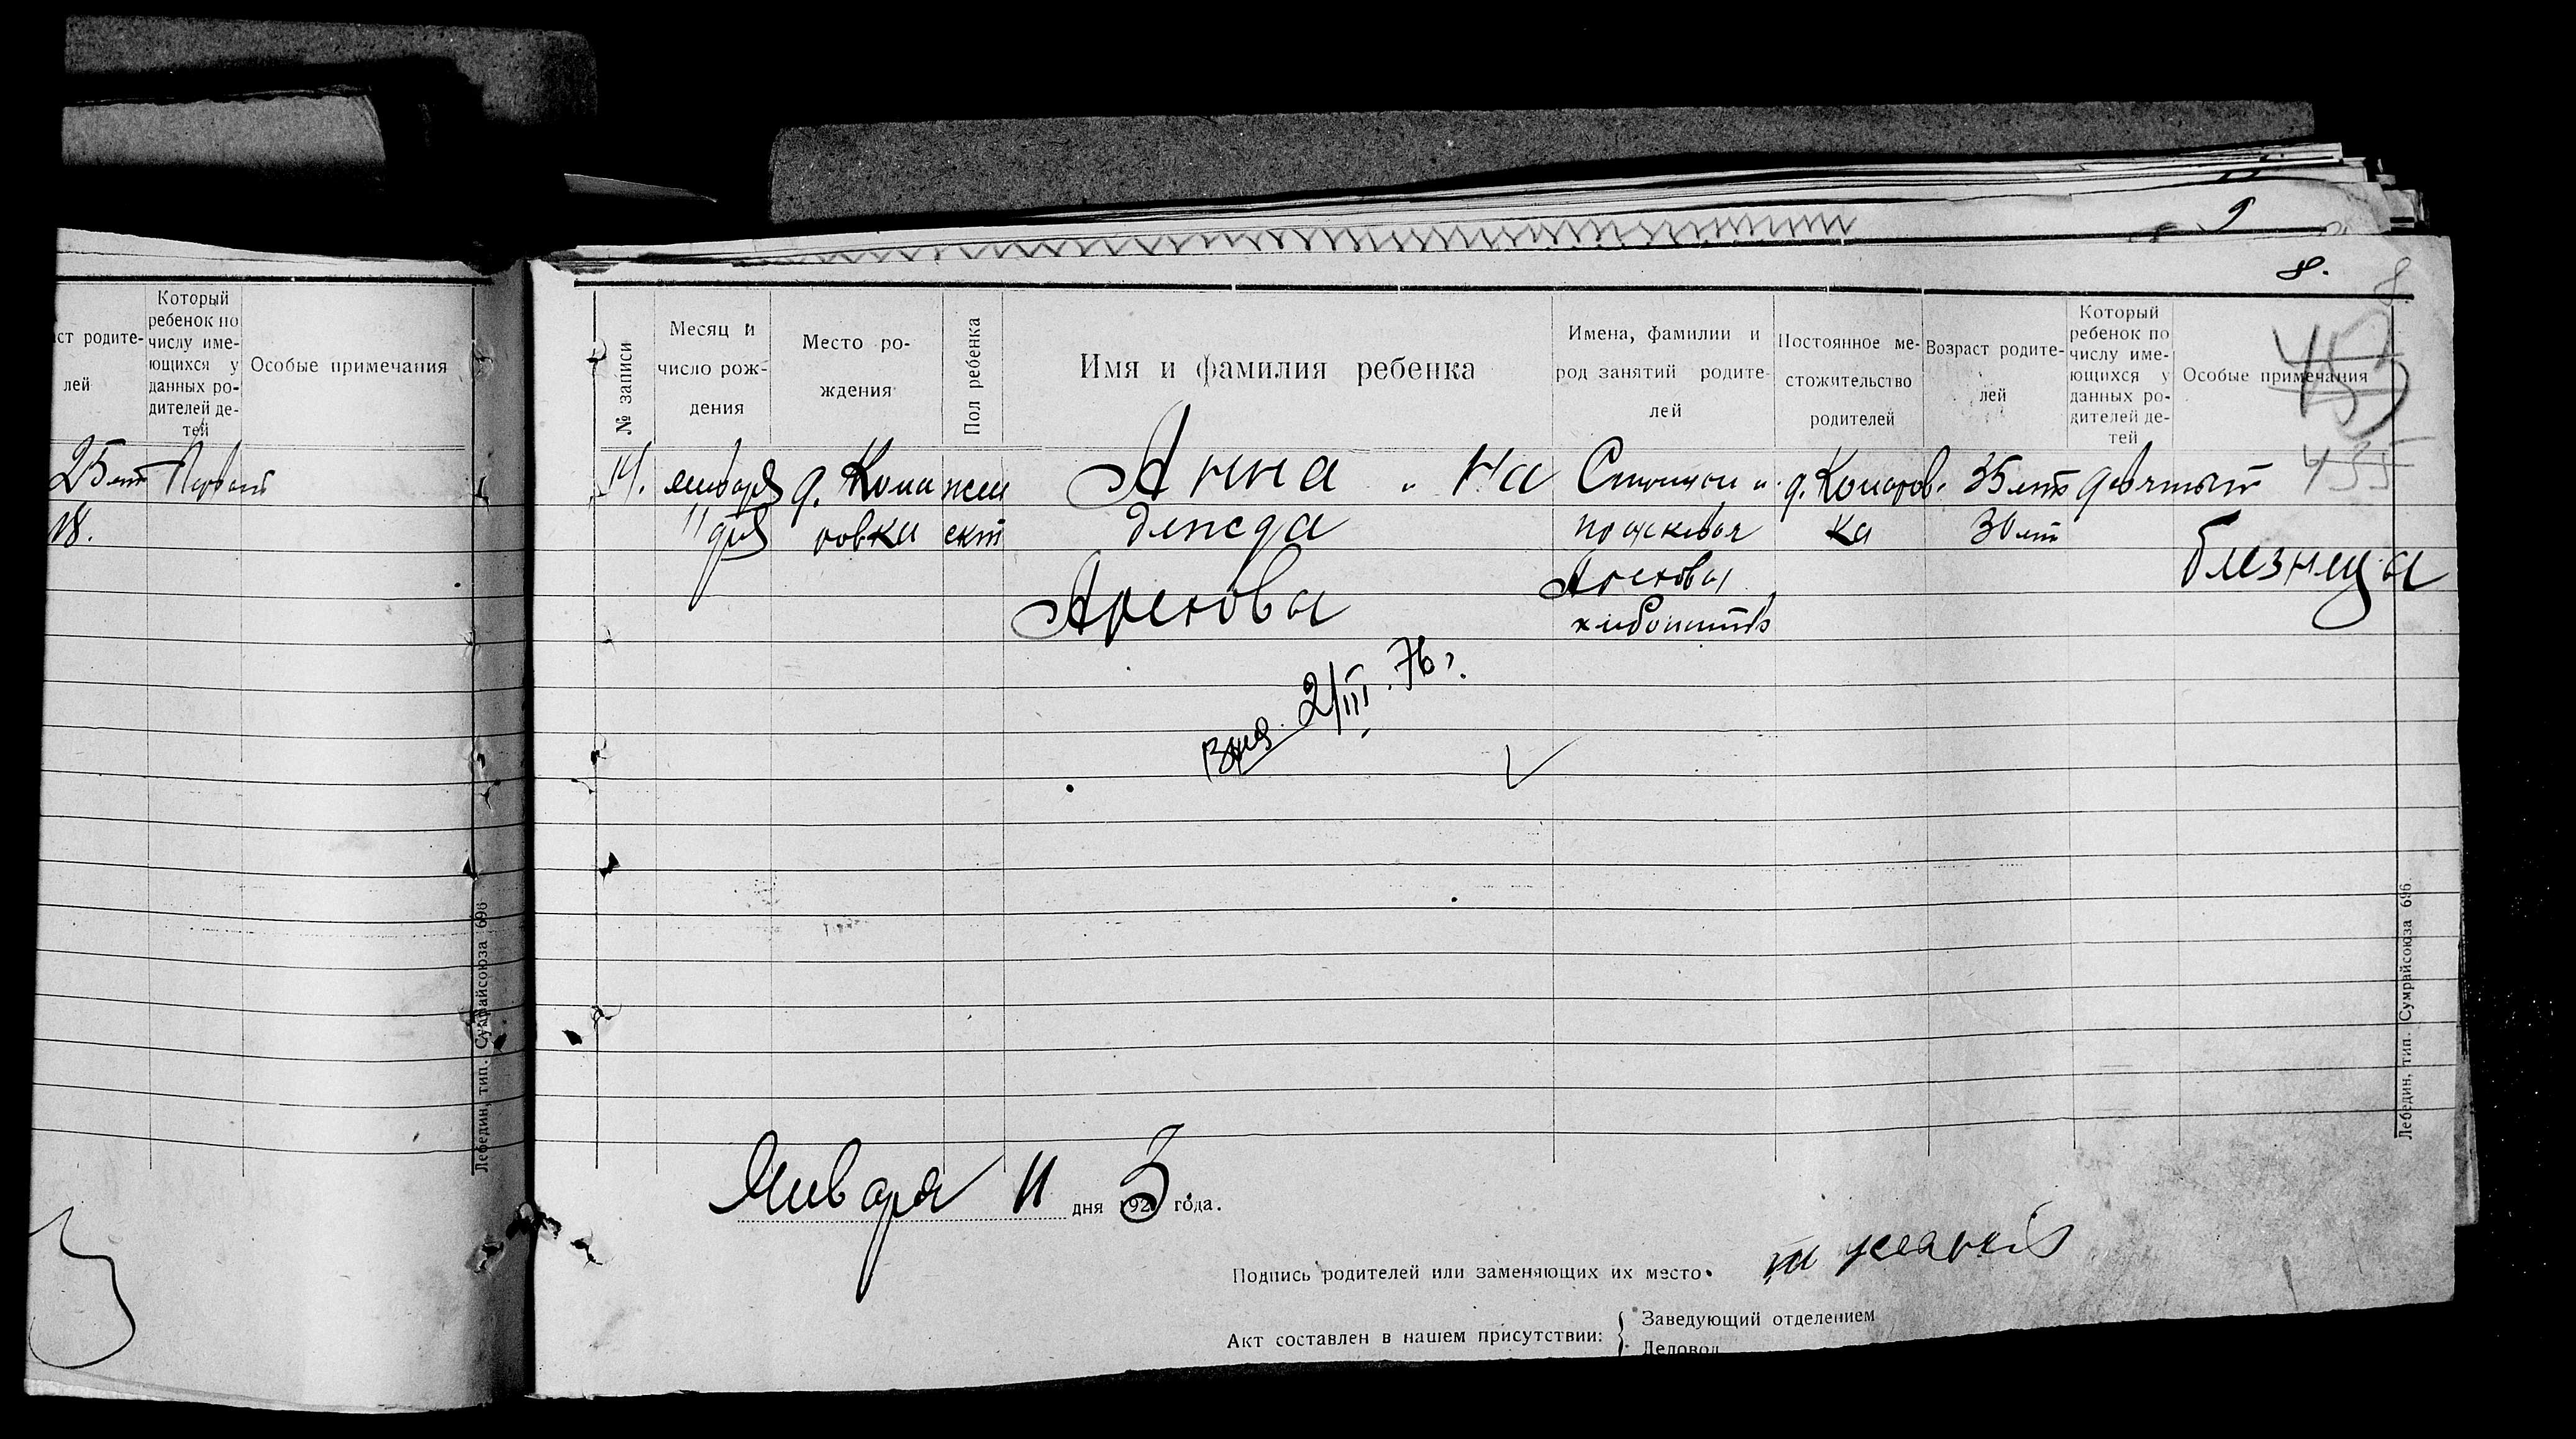 9
8.
457
435
ст родите-
лей
Который
ребенок по
числу име-
ющихся у
данных ро-
дителей де-
тей
Особые примечания
25 лет Первый
18.
Лебедин, тип. Сумрайсоюза 696
№ записи
Месяц и
число рож-
дения
Место ро-
ждения
Пол ребенка
Имя и фамилия ребенка
Имена, фамилии и
род занятий родите-
лей
Постоянное ме-
стожительство
родителей
Возраст родите-
лей
Который
ребенок по
числу име-
ющихся у
данных ро-
дителей де-
тей
Особые примечания
14. января д. Кома жен Анна и На д. Комаров- 35 лет девятый
11 дня ровка ский дежда ка 30 лет
близнеца
2/III. 76 г.
Января 11 дня 1923 года.
Подпись родителей или заменяющих их место
Акт составлен в нашем присутствии:
Заведующий отделением
Деловод
Лебедин, тип. Сумрайсоюза 696